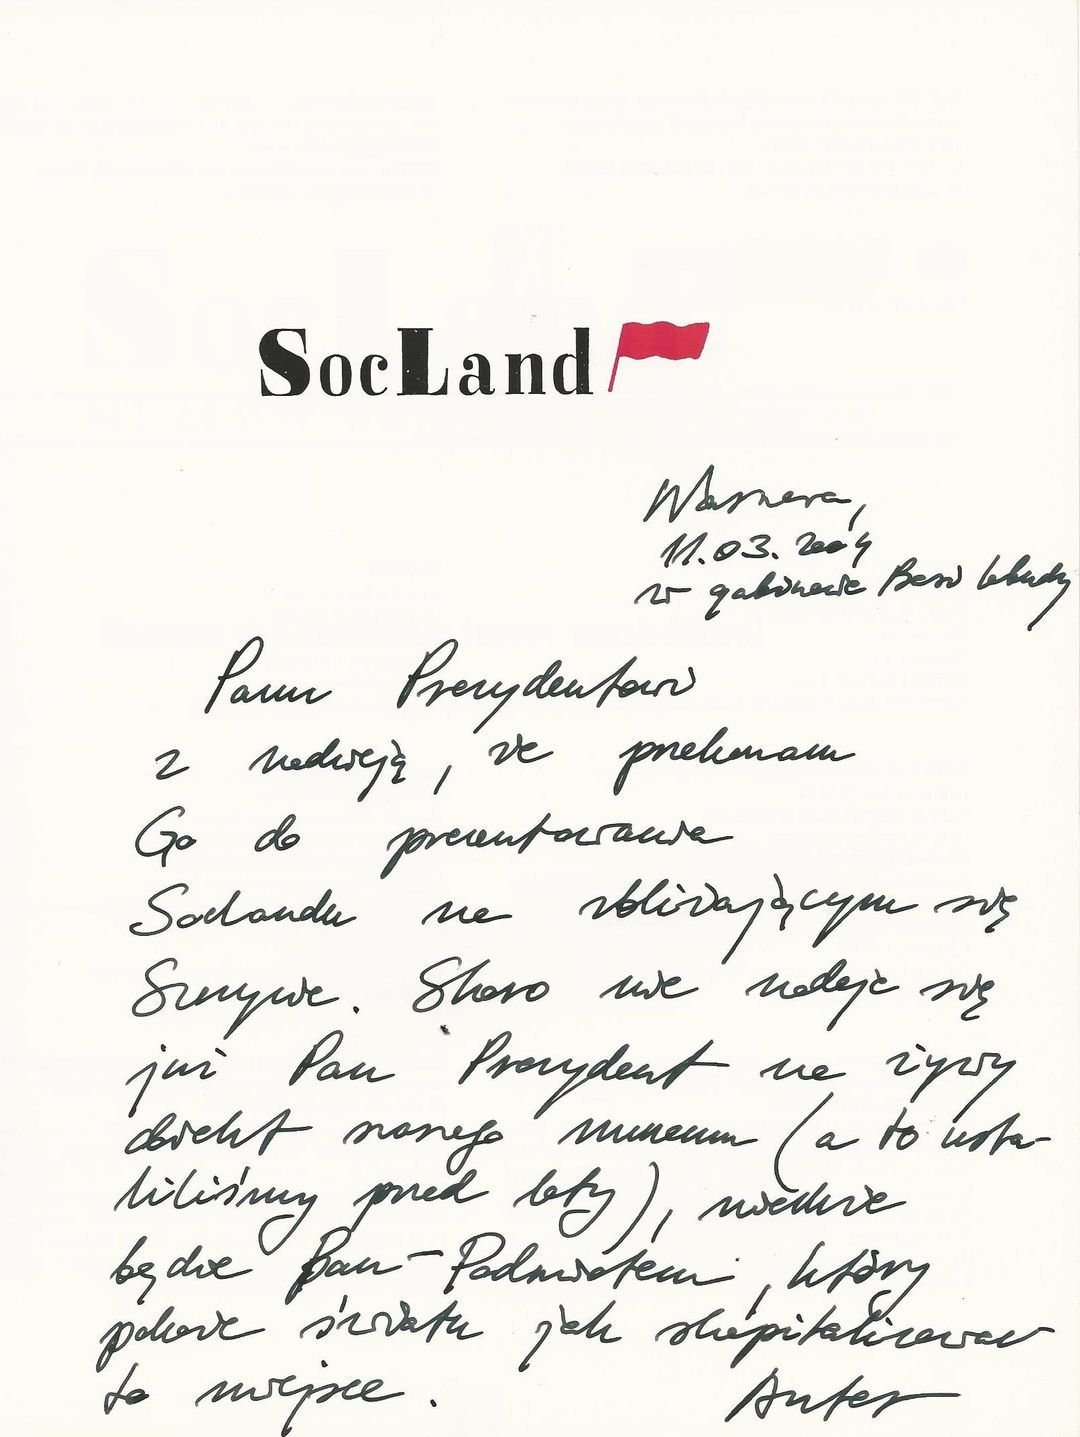 SocLand
Warszawa,
11.03.2004
w gabinecie Basi Labudy
Panu Prezydentowi
z nadzieją, że przekonam
Go do prezentowania
Soclandu na zbliżającym się
Szczycie. Skoro nie nadaje się
już Pan Prezydent na żywy
obiekt naszego muzeum (a to usta-
liliśmy przed laty), niechże
będzie Pan-Podmiotem, który
pokaże światu jak skapitalizować
to miejsce.
Autor